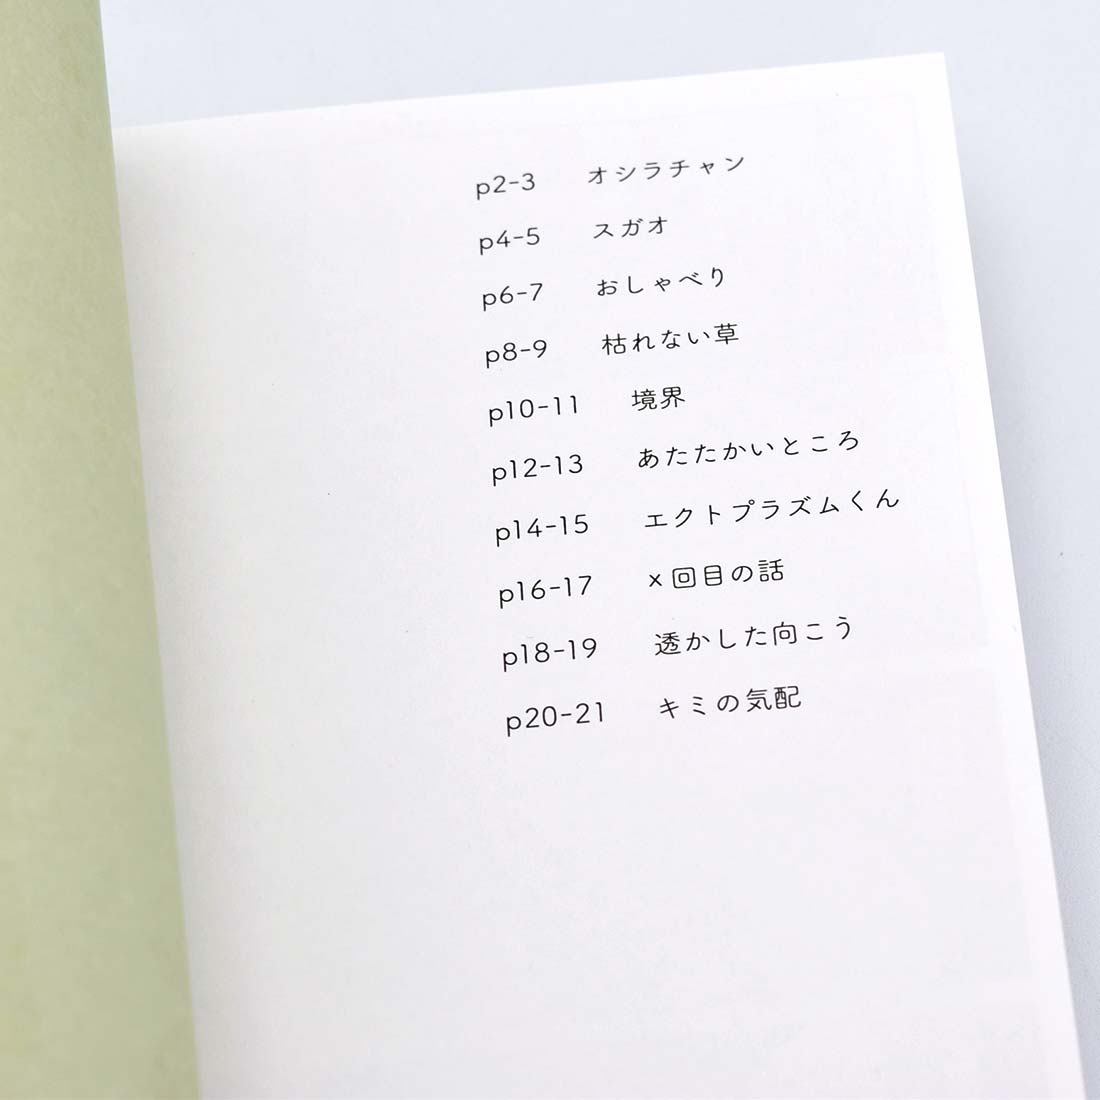 p2-3 オシラチャン
p4-5 スガオ
p6-7 おしゃべり
p8-9 枯れない草
p10-11 境界
p12-13 あたたかいところ
p14-15 エクトプラズムくん
p16-17 ×回目の話
p18-19 透かした向こう
p20-21 キミの気配